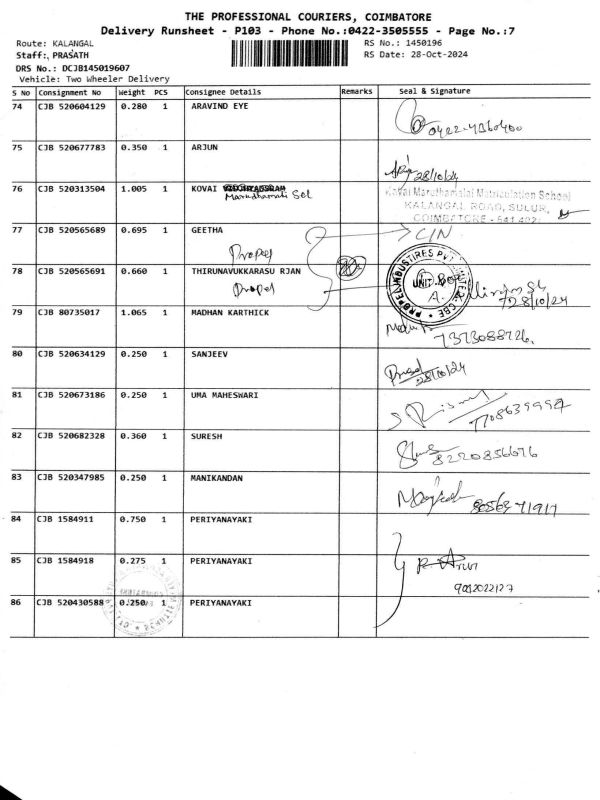 THE PROFESSIONAL COURIERS, COIMBATORE
Delivery Runsheet - P103 - Phone No.:0422-3505555 - Page No.:7
Route: KALANGAL
RS No.: 1450196
Staff:, PRASATH
RS Date: 28-Oct-2024
DRS No.: DCJB145019607
Vehicle: Two Wheeler Delivery
S No Consignment No Weight PCS Consignee Details Remarks Seal & Signature
74 CJB 520604129 0.280 1 ARAVIND EYE
75 CJB 520677783 0.350 1 ARJUN
28/10/24
76 CJB 520313504 1.005 1 KOVAI
Kovai Maruthamalai Matriculation School
KALANGAL ROAD, SULUR,
COIMBATORE - 641 402
77 CJB 520565689 0.695 1 GEETHA
Propel
78 CJB 520565691 0.660 1 THIRUNAVUKKARASU RJAN
Propel
UNIT
28/10/24
79 CJB 80735017 1.065 1 MADHAN KARTHICK
7373088726.
80 CJB 520634129 0.250 1 SANJEEV
28/10/24
81 CJB 520673186 0.250 1 UMA MAHESWARI
82 CJB 520682328 0.360 1 SURESH
8220856676
83 CJB 520347985 0.250 1 MANIKANDAN
84 CJB 1584911 0.750 1 PERIYANAYAKI
85 CJB 1584918 0.275 1 PERIYANAYAKI
86 CJB 520430588 0.250 1 PERIYANAYAKI